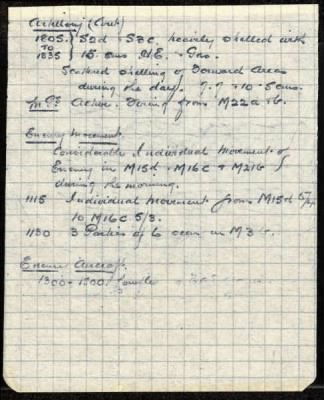 Artillery (Cont)
1805 } S2d + S3c. heavily shelled with
TO
1835 } 15 cms H.E. + Gas.
Scattered shelling of Forward Areas
during the day. 7.7 + 10.5 cms.
M.Gs Active. Firing from M22a + b.
Enemy Movement.
Considerable Individual Movement of
Enemy in M15d. M16c + M21b
during the morning.
1115 Individual Movement from M15d
to M16c 5/3.
1130 3 Parties of 6 seen in M3
Enemy Aircraft.
1300 - 1500